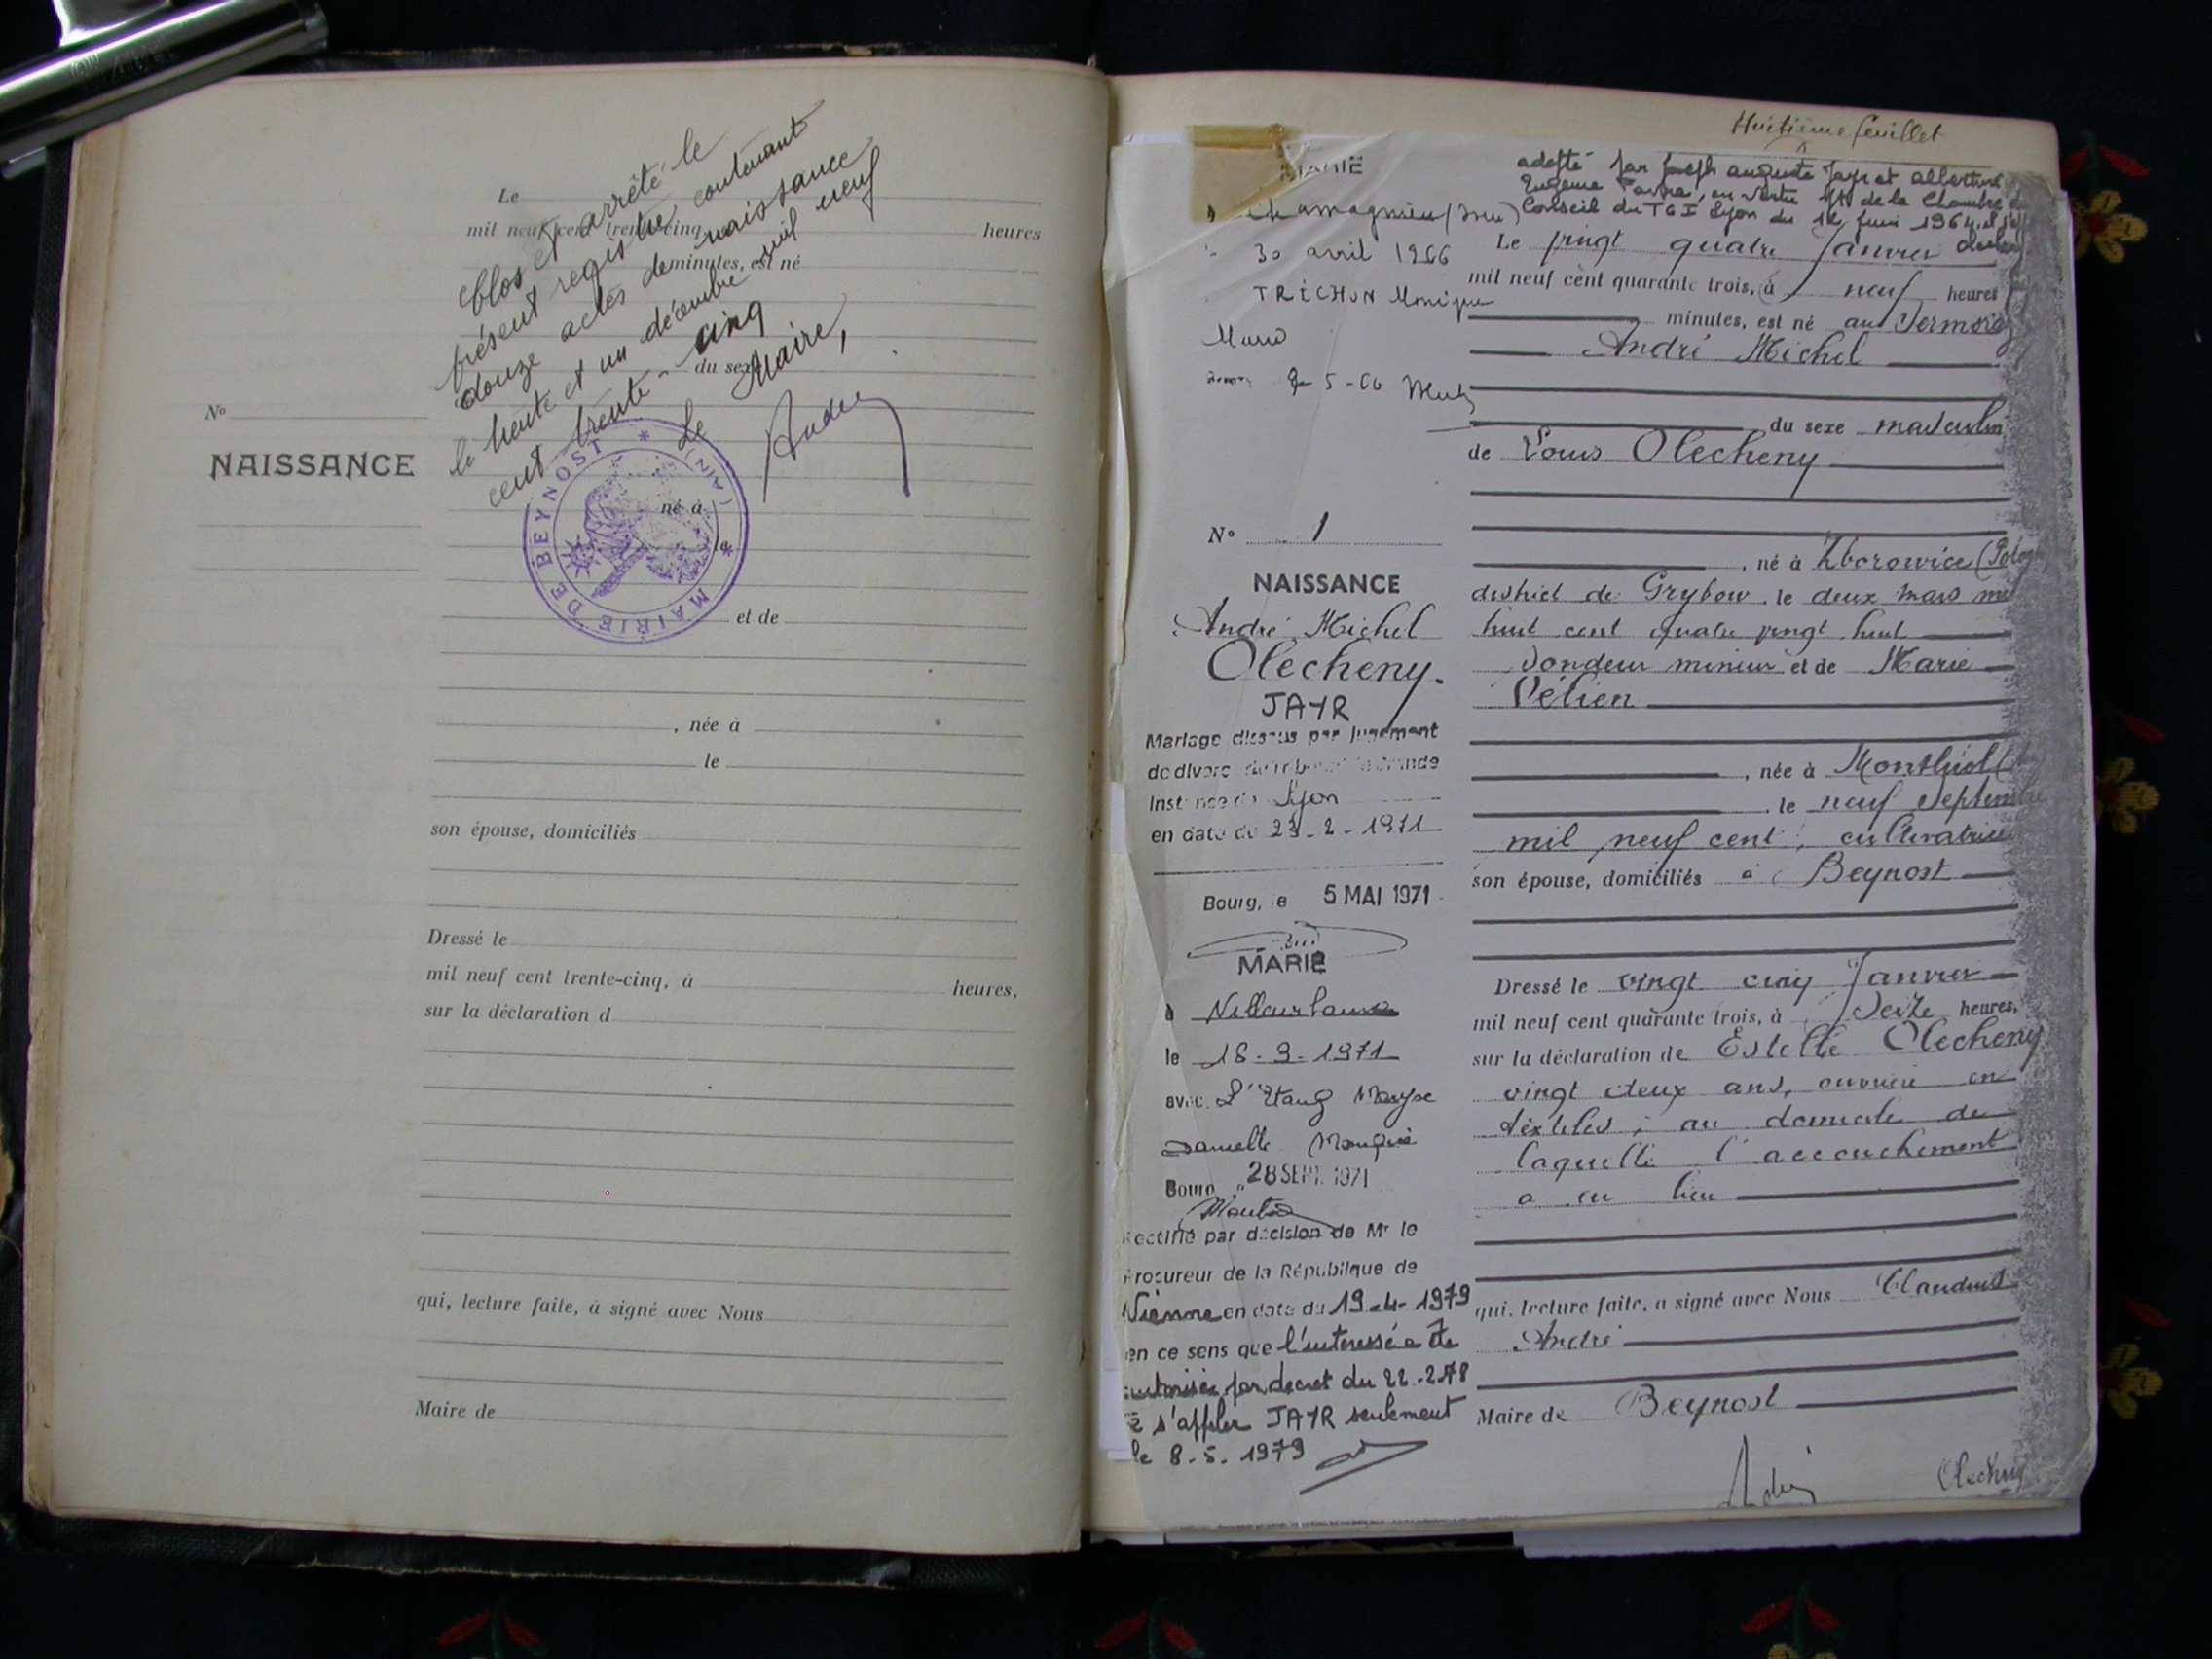 Le
mil neuf cent trente-cinq heures
minutes, est né
du sexe
Clos et arrêté le
présent registre contenant
douze actes de naissance
le trente et un décembre mil neuf
cent trente-cinq
Le Maire,
André
No
NAISSANCE
MAIRIE DE BEYNOST (AIN)
né à
le
et de
, née à
le
son épouse, domiciliés
Dressé le
mil neuf cent trente-cinq, à heures,
sur la déclaration d
qui, lecture faite, a signé avec Nous
Maire de
Huitième feuillet
MARIÉ
à Chamagnieu (
30 avril 1966
TRICHON Monique
Marie
5-66
adopté par Joseph Auguste Jayr et Albertine
Eugénie Favre, en vertu de la Chambre du
Conseil du TGI Lyon du 12 juin 1964
Le vingt quatre Janvier
mil neuf cent quarante trois, à neuf heures
minutes, est né au
André Michel
du sexe masculin
de Louis Olecheny
, né à Zborowice (
district de Grybow, le deux mars mil
huit cent quatre vingt huit
mineur et de Marie
Vélien
, née à Montluel (
le neuf Septembre
mil neuf cent, cultivatrice
son épouse, domiciliés à Beynost
Dressé le vingt cinq Janvier
mil neuf cent quarante trois, à Seize heures,
sur la déclaration de Estelle Olecheny
vingt deux ans, ouvrière en
textiles, au domicile de
laquelle l'accouchement
a eu lieu
qui, lecture faite, a signé avec Nous Claudius
André
Maire de Beynost
Olecheny
N° 1
NAISSANCE
André Michel
Olecheny.
JAYR
Mariage dissous par jugement
de divorce du tribunal de Grande
Instance de Lyon
en date du 23-2-1971
Bourg, le 5 MAI 1971
MARIÉ
à Villeurbanne
le 18-9-1971
avec L'Etang Maryse
Danielle
Bourg 28 SEPT. 1971
Rectifié par décision de Mr le
Procureur de la République de
Vienne en date du 19-4-1979
en ce sens que l'intéressé a été
autorisé par décret du 22-2-78
à s'appeler JAYR seulement
le 8.5.1979